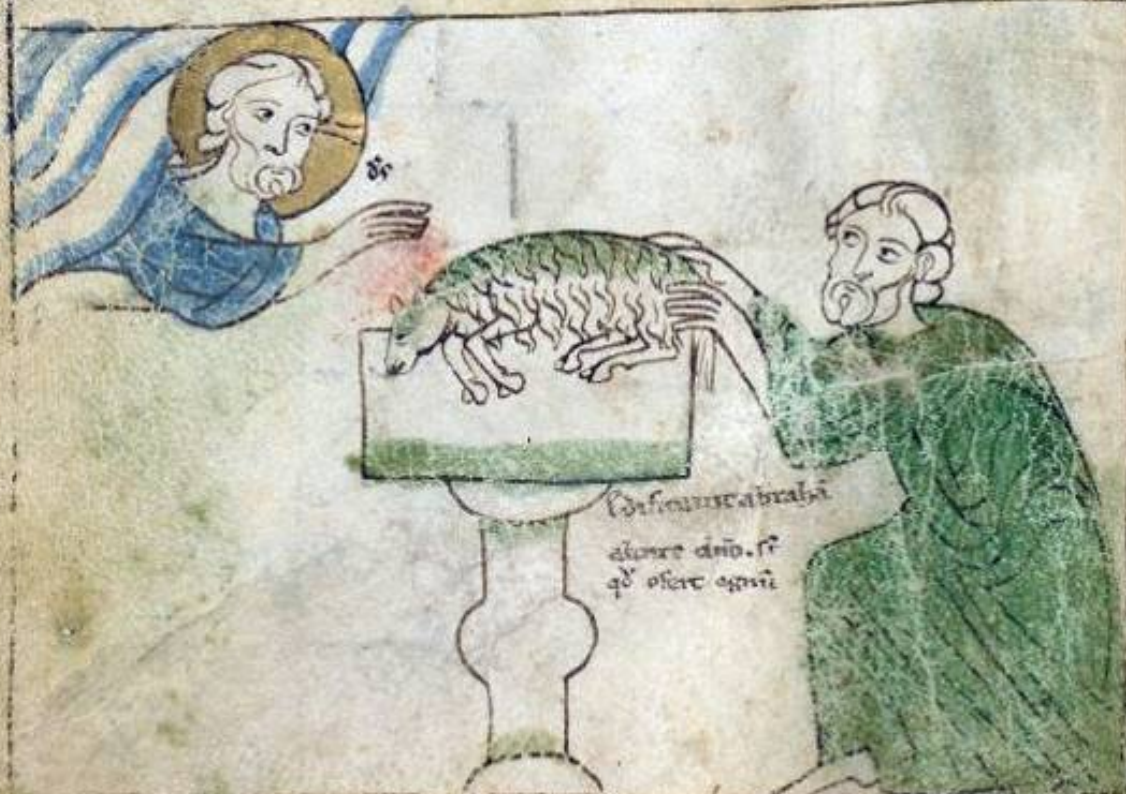 ds̄
Edificauit abrahã
altare dño. sr̄
qd̛ ofert agnũ